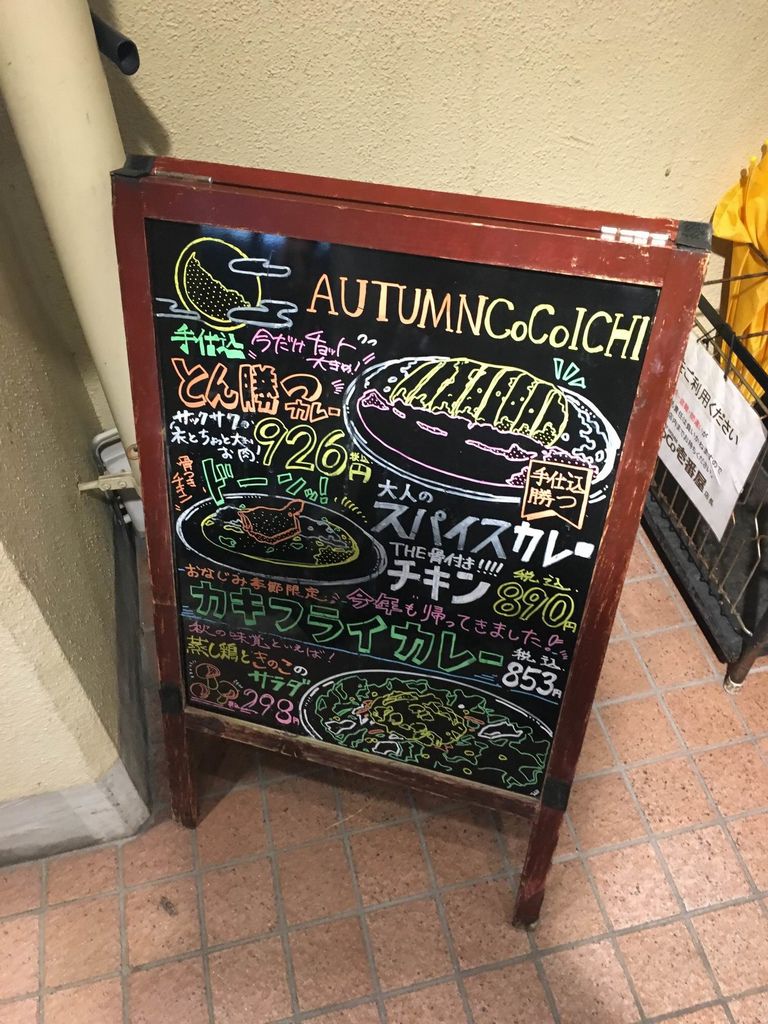 AUTUMN CoCoICHI
手仕込
今だけチョット
大きめ!
とん勝つカレー
サックサクの
衣とちゃんと大きい
お肉!
926円
税込
手仕込
勝つ
骨つき
チキン
ドーンッ!
大人の
スパイスカレー
THE骨付き!!!!
チキン
税込
890円
おなじみ季節限定
今年も帰ってきました!!
カキフライカレー
税込
853円
秋の味覚といえば!
蒸し鶏ときのこの
サラダ
税込298円
ご利用ください
壱番屋
店長